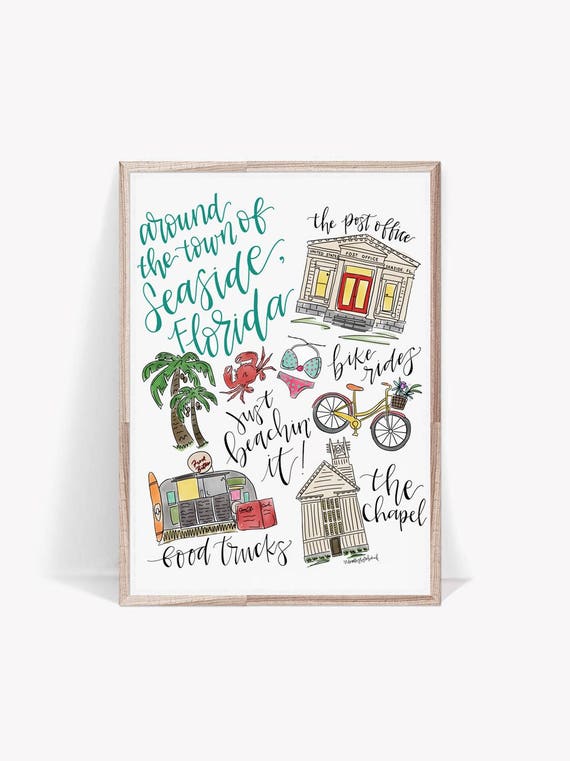 around
the town of
Seaside,
Florida
the post office
UNITED STATES POST OFFICE SEASIDE, FL
bike rides
just
beachin'
it!
food trucks
the
Chapel